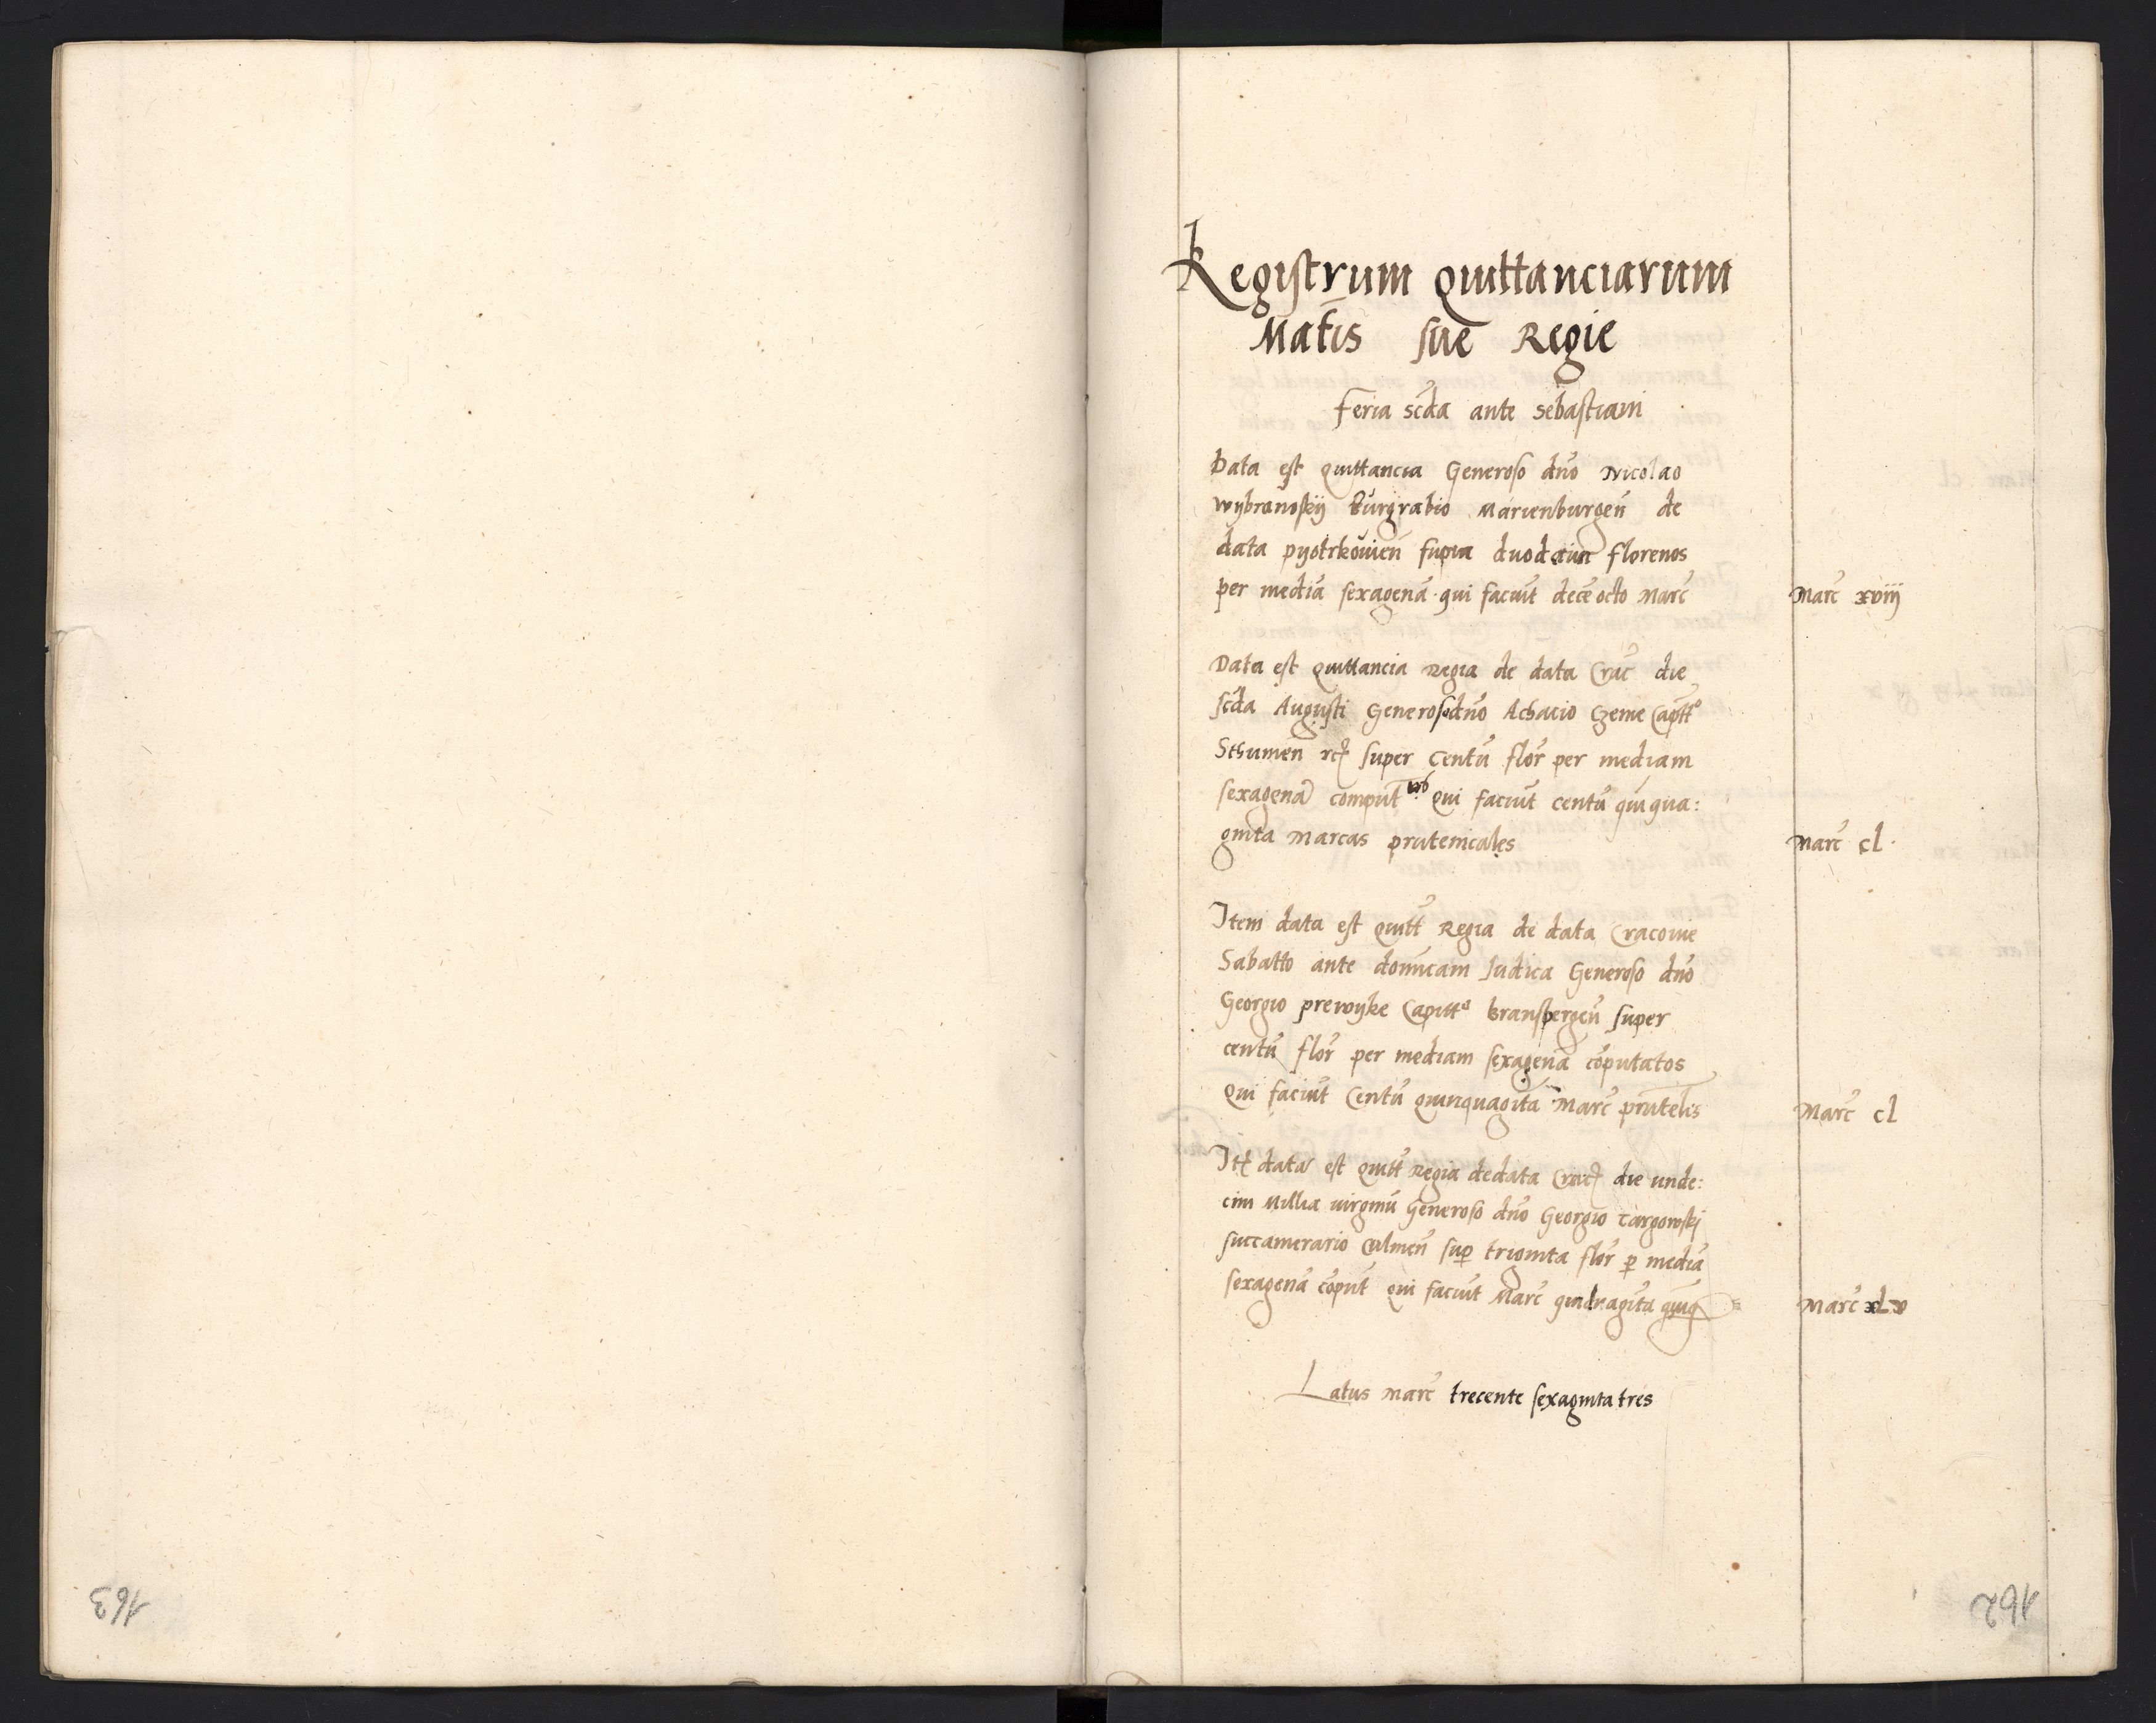 Registrum quittanciarum
Matis sue Regie
Feria scda ante sebastiani
Data est quittancia Generoso dno Nicolao
wybranoskij burgrabio Marienburgen de
data pyotrkouien supra duodecim florenos
per media sexagena qui faciut dece octo Marc
Marc xviij
Data est quittancia Regia de data Crac die
scda Augusti Generoso dno Achacio Czeme Captto
Sthumen super Centu flor per mediam
sexagena comput qui faciut centu quiqua:
ginta Marcas prutenicales
Marc cl
Item data est quitt Regia de data Cracouie
Sabatto ante domicam Judica Generoso dno
Georgio prewyke Capitto bransbergen super
centu flor per mediam sexagena coputatos
Qui faciut Centu quinquagita Marc prutelis
Marc cl
It data est quitt Regia de data Crac die unde:
cim Millia uirginu Generoso dno Georgio Targowskj
succamerario Culmen sup triginta flor p media
sexagena coput qui faciut Marc quadragita quiq
Marc xLv
Latus marc trecente sexaginta tres
163
162